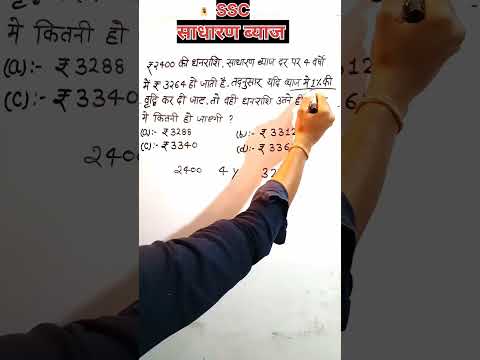 SSC
साधारण ब्याज
₹2400 की धनराशि, साधारण ब्याज दर पर 4 वर्षों
में ₹ 3264 हो जाती है. तद्नुसार, यदि ब्याज में 1% की
वृद्धि कर दी जाए, तो वही धनराशि उतने ही
में कितनी हो जाएगी ?
(a):- ₹3288 (b):- ₹ 3312
(C):- ₹3340 (d):- ₹ 336
2400 4 32